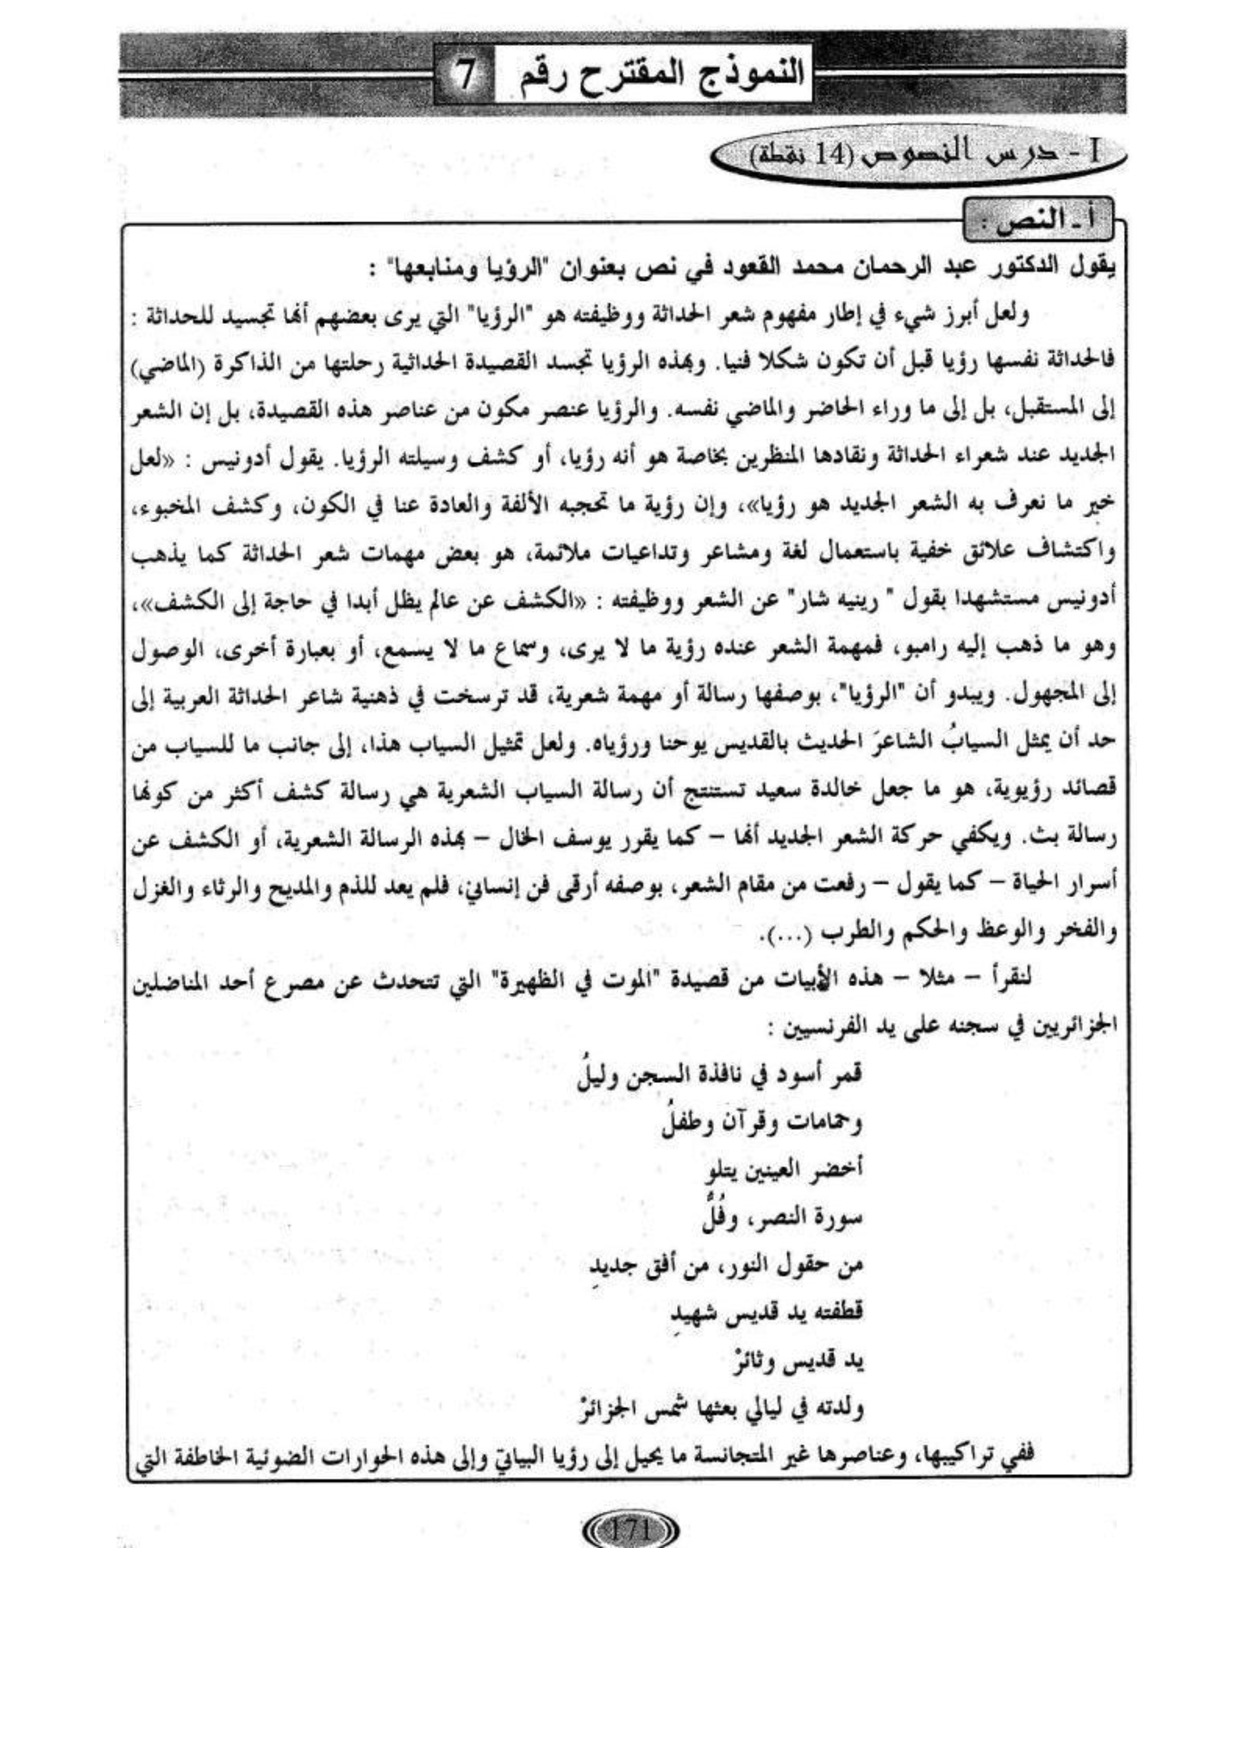 النموذج المقترح رقم 7
I - درس النصوص (14 نقطة)
أ ـ النص :
يقول الدكتور عبد الرحمان محمد القعود في نص بعنوان "الرؤيا ومنابعها" :
ولعل أبرز شيء في إطار مفهوم شعر الحداثة ووظيفته هو "الرؤيا" التي يرى بعضهم أنها تجسيد للحداثة :
فالحداثة نفسها رؤيا قبل أن تكون شكلا فنيا. وبهذه الرؤيا تجسد القصيدة الحداثية رحلتها من الذاكرة (الماضي)
إلى المستقبل، بل إلى ما وراء الحاضر والماضي نفسه. والرؤيا عنصر مكون من عناصر هذه القصيدة، بل إن الشعر
الجديد عند شعراء الحداثة ونقادها المنظرين بخاصة هو أنه رؤيا، أو كشف وسيلته الرؤيا. يقول أدونيس : «لعل
خير ما نعرف به الشعر الجديد هو رؤيا»، وإن رؤية ما تحجبه الألفة والعادة عنا في الكون، وكشف المخبوء،
واكتشاف علائق خفية باستعمال لغة ومشاعر وتداعيات ملائمة، هو بعض مهمات شعر الحداثة كما يذهب
أدونيس مستشهدا بقول " رينيه شار" عن الشعر ووظيفته : «الكشف عن عالم يظل أبدا في حاجة إلى الكشف»،
وهو ما ذهب إليه رامبو، فمهمة الشعر عنده رؤية ما لا يرى، وسماع ما لا يسمع، أو بعبارة أخرى، الوصول
إلى المجهول. ويبدو أن "الرؤيا"، بوصفها رسالة أو مهمة شعرية، قد ترسخت في ذهنية شاعر الحداثة العربية إلى
حد أن يمثل السيابُ الشاعرَ الحديث بالقديس يوحنا ورؤياه. ولعل تمثيل السياب هذا، إلى جانب ما للسياب من
قصائد رؤيوية، هو ما جعل خالدة سعيد تستنتج أن رسالة السياب الشعرية هي رسالة كشف أكثر من كونها
رسالة بث. ويكفي حركة الشعر الجديد أنها – كما يقرر يوسف الخال – بهذه الرسالة الشعرية، أو الكشف عن
أسرار الحياة – كما يقول – رفعت من مقام الشعر، بوصفه أرقى فن إنساني، فلم يعد للذم والمديح والرثاء والغزل
والفخر والوعظ والحكم والطرب (...).
لنقرأ – مثلا – هذه الأبيات من قصيدة "الموت في الظهيرة" التي تتحدث عن مصرع أحد المناضلين
الجزائريين في سجنه على يد الفرنسيين :
قمر أسود في نافذة السجن وليلُ
وحمامات وقرآن وطفلُ
أخضر العينين يتلو
سورة النصر، وفُلٌّ
من حقول النور، من أفق جديدِ
قطفته يد قديس شهيدِ
يد قديس وثائرْ
ولدته في ليالي بعثها شمس الجزائرْ
ففي تراكيبها، وعناصرها غير المتجانسة ما يحيل إلى رؤيا البياتيّ وإلى هذه الحوارات الضوئية الخاطفة التي
171